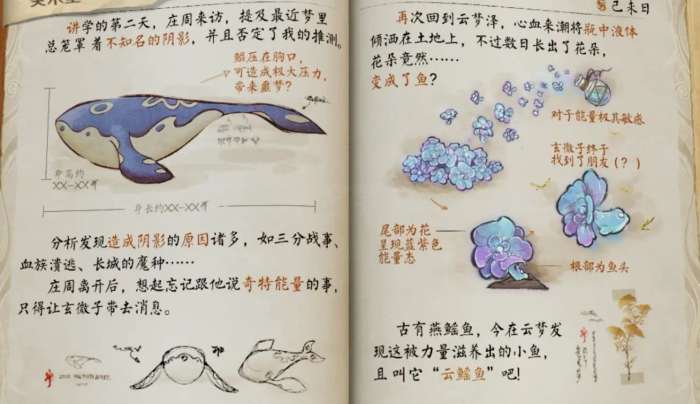 讲学的第二天，庄周来访，提及最近梦里
总笼罩着不知名的阴影，并且否定了我的推测。
鲲压在胸口，
可造成极大压力，
带来噩梦？
身高约
XX-XX尺
身长约XX-XX尺
分析发现造成阴影的原因诸多，如三分战事、
血族溃逃、长城的魔种……
庄周离开后，想起忘记跟他说奇特能量的事，
只得让玄微子带去消息。
己未日
再次回到云梦泽，心血来潮将瓶中液体
倾洒在土地上，不过数日长出了花朵，
花朵竟然……
变成了鱼？
对于能量极其敏感
玄微子终于
找到了朋友（？）
尾部为花
呈现蓝紫色
能量态
根部为鱼头
古有燕鳐鱼，今在云梦发
现这被力量滋养出的小鱼，
且叫它“云鳐鱼”吧！